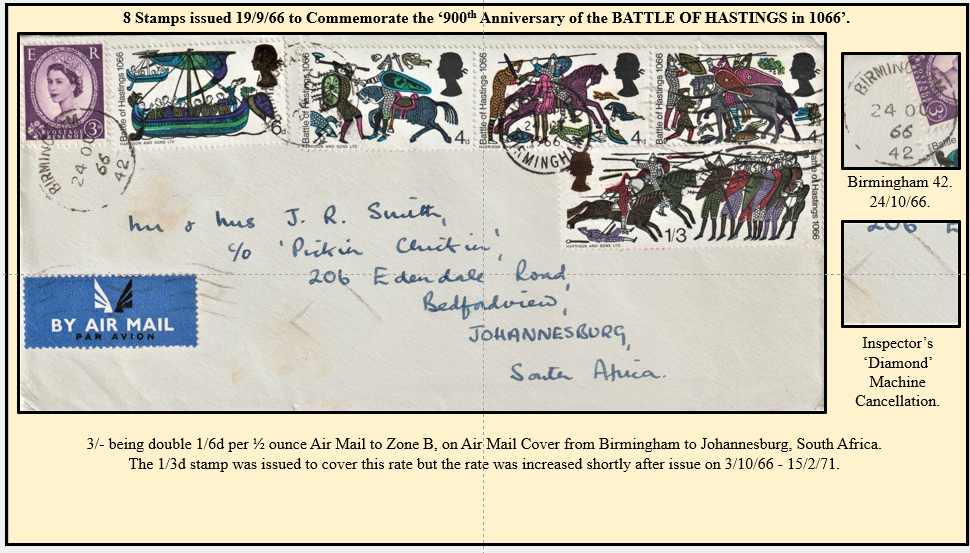 8 Stamps issued 19/9/66 to Commemorate the ‘900th Anniversary of the BATTLE OF HASTINGS in 1066’.
E R
POSTAGE
3D
Battle of Hastings 1066
6d
HARRISON AND SONS LTD
Battle of Hastings 1066
4d
HARRISON AND SONS LTD
Battle of Hastings 1066
4d
HARRISON AND SONS LTD
Battle of Hastings 1066
4d
HARRISON AND SONS LTD
Battle of Hastings 1066
1/3
HARRISON AND SONS LTD
BIRMING
24 OC
66
42
1966
BIRMINGHA
Mr & Mrs J. R. Smith,
c/o
206 Edendale Road,
Bedfordview,
JOHANNESBURG,
South Africa.
BY AIR MAIL
PAR AVION
BIRMING
24 OC
66
42
3
Battle
Birmingham 42.
24/10/66.
206 E
Inspector’s
‘Diamond’
Machine
Cancellation.
3/- being double 1/6d per ½ ounce Air Mail to Zone B, on Air Mail Cover from Birmingham to Johannesburg, South Africa.
The 1/3d stamp was issued to cover this rate but the rate was increased shortly after issue on 3/10/66 - 15/2/71.